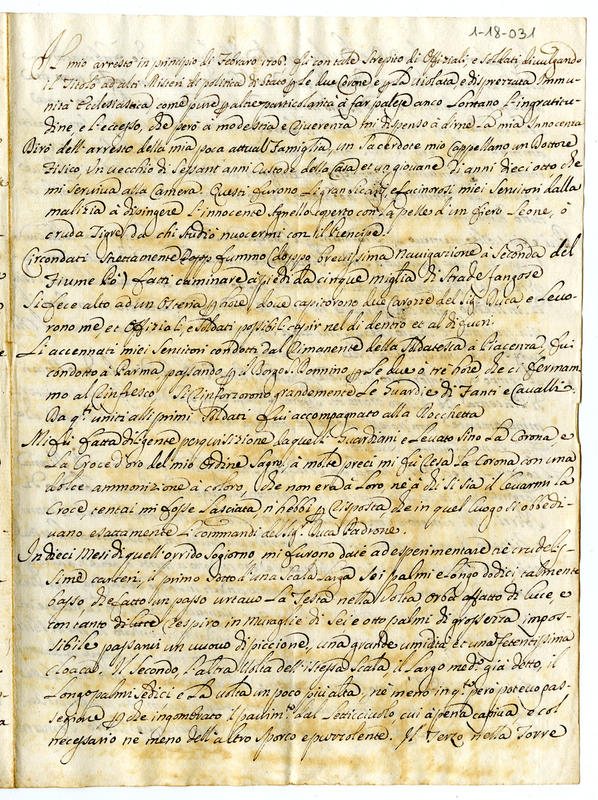 1-18-031
Il mio arresto in principio di Febraro 1706. fù con tale strepito di Offiziali, e soldati divulgando
il Titolo ad alti Misteri di politica di Stato le due Corone e la violata e disprezzata Immu-
nità Ecclesiastica come pure altre particolarità à far palese anco lontano l'ingratitu-
dine, e l'eccesso, che però a modestia e riverenza mi dispenso à dirne la mia Innocenza
Dirò dell'arresto della mia poca attual Famiglia, un Sacerdote mio Cappellano, un Dottore
Fisico, un vecchio di sessant'anni Custode della Casa, et un giovane di anni dieci otto che
mi serviva alla Camera. Questi furono li gran Sicarij, e facinorosi miei Servitori dalla
malizia à dipingere l'innocente Agnello coperto con la pelle d'un fiero Leone, ò
cruda Tigre da chi studiò nuocermi con il Prencipe.
Circondati strettamente doppo fummo (doppo brevissima navigazione à seconda del
Fiume Pò) fatti caminare à piedi da cinque miglia di strade fangose
Si fece alto ad un Osteria hore, dove capitorono due carozze del Sig. Duca e levo-
rono me, et Offiziali, e soldati possibile capir nel di dentro et al di fuori.
Li accennati miei Servitori condotti dal rimanente della soldatesca à Piacenza, fui
condotto à Parma passando Borgo S. Donnino le due ò tre hore che ci fermam-
mo al rinfresco si rinforzorono grandemente le Guardie di Fanti e Cavalli.
Da q.ti uniti alli primi soldati fui accompagnato alla Rocchetta
Mi fu fatta diligente perquisizione da quelli Guardiani e levato sino la Corona e
la Croce d'oro del mio Ordine Sagro, à molte preci mi fù resa la Corona con una
dolce ammonizione à coloro, che non era à loro nè à chi si sia il levarmi la
Croce, tentai mi fosse lasciata n'hebbi risposta che in quel luogo si obbedi-
vano esattamente li commandi del Sig. Duca Padrone.
In dieci Mesi di quell'orrido sogiorno mi furono date ad esperimentare tre crudelis-
sime carceri, il primo sotto d'una scala larga sei palmi e longo dodici talmente
basso che fatto un passo urtavo la testa nella volta orba affatto di luce e
con tanto di luce respiro in muraglie di sei e otto palmi di grossezza, impos-
sibile passarvi un vuovo di piccione, una grande umidità et una fetentissima
cloaca. Il Secondo, l'altra volta dell'istessa scala il largo med.mo già detto, il
longo palmi sedici e la volta un poco più alta, nè meno in q.to però potevo pas-
segiare che ingombrato il pavim.to dal letticciuolo cui à pena capiva e col
necessario nè meno dell'altro sporco e puzzolente. Il Terzo nella Torre